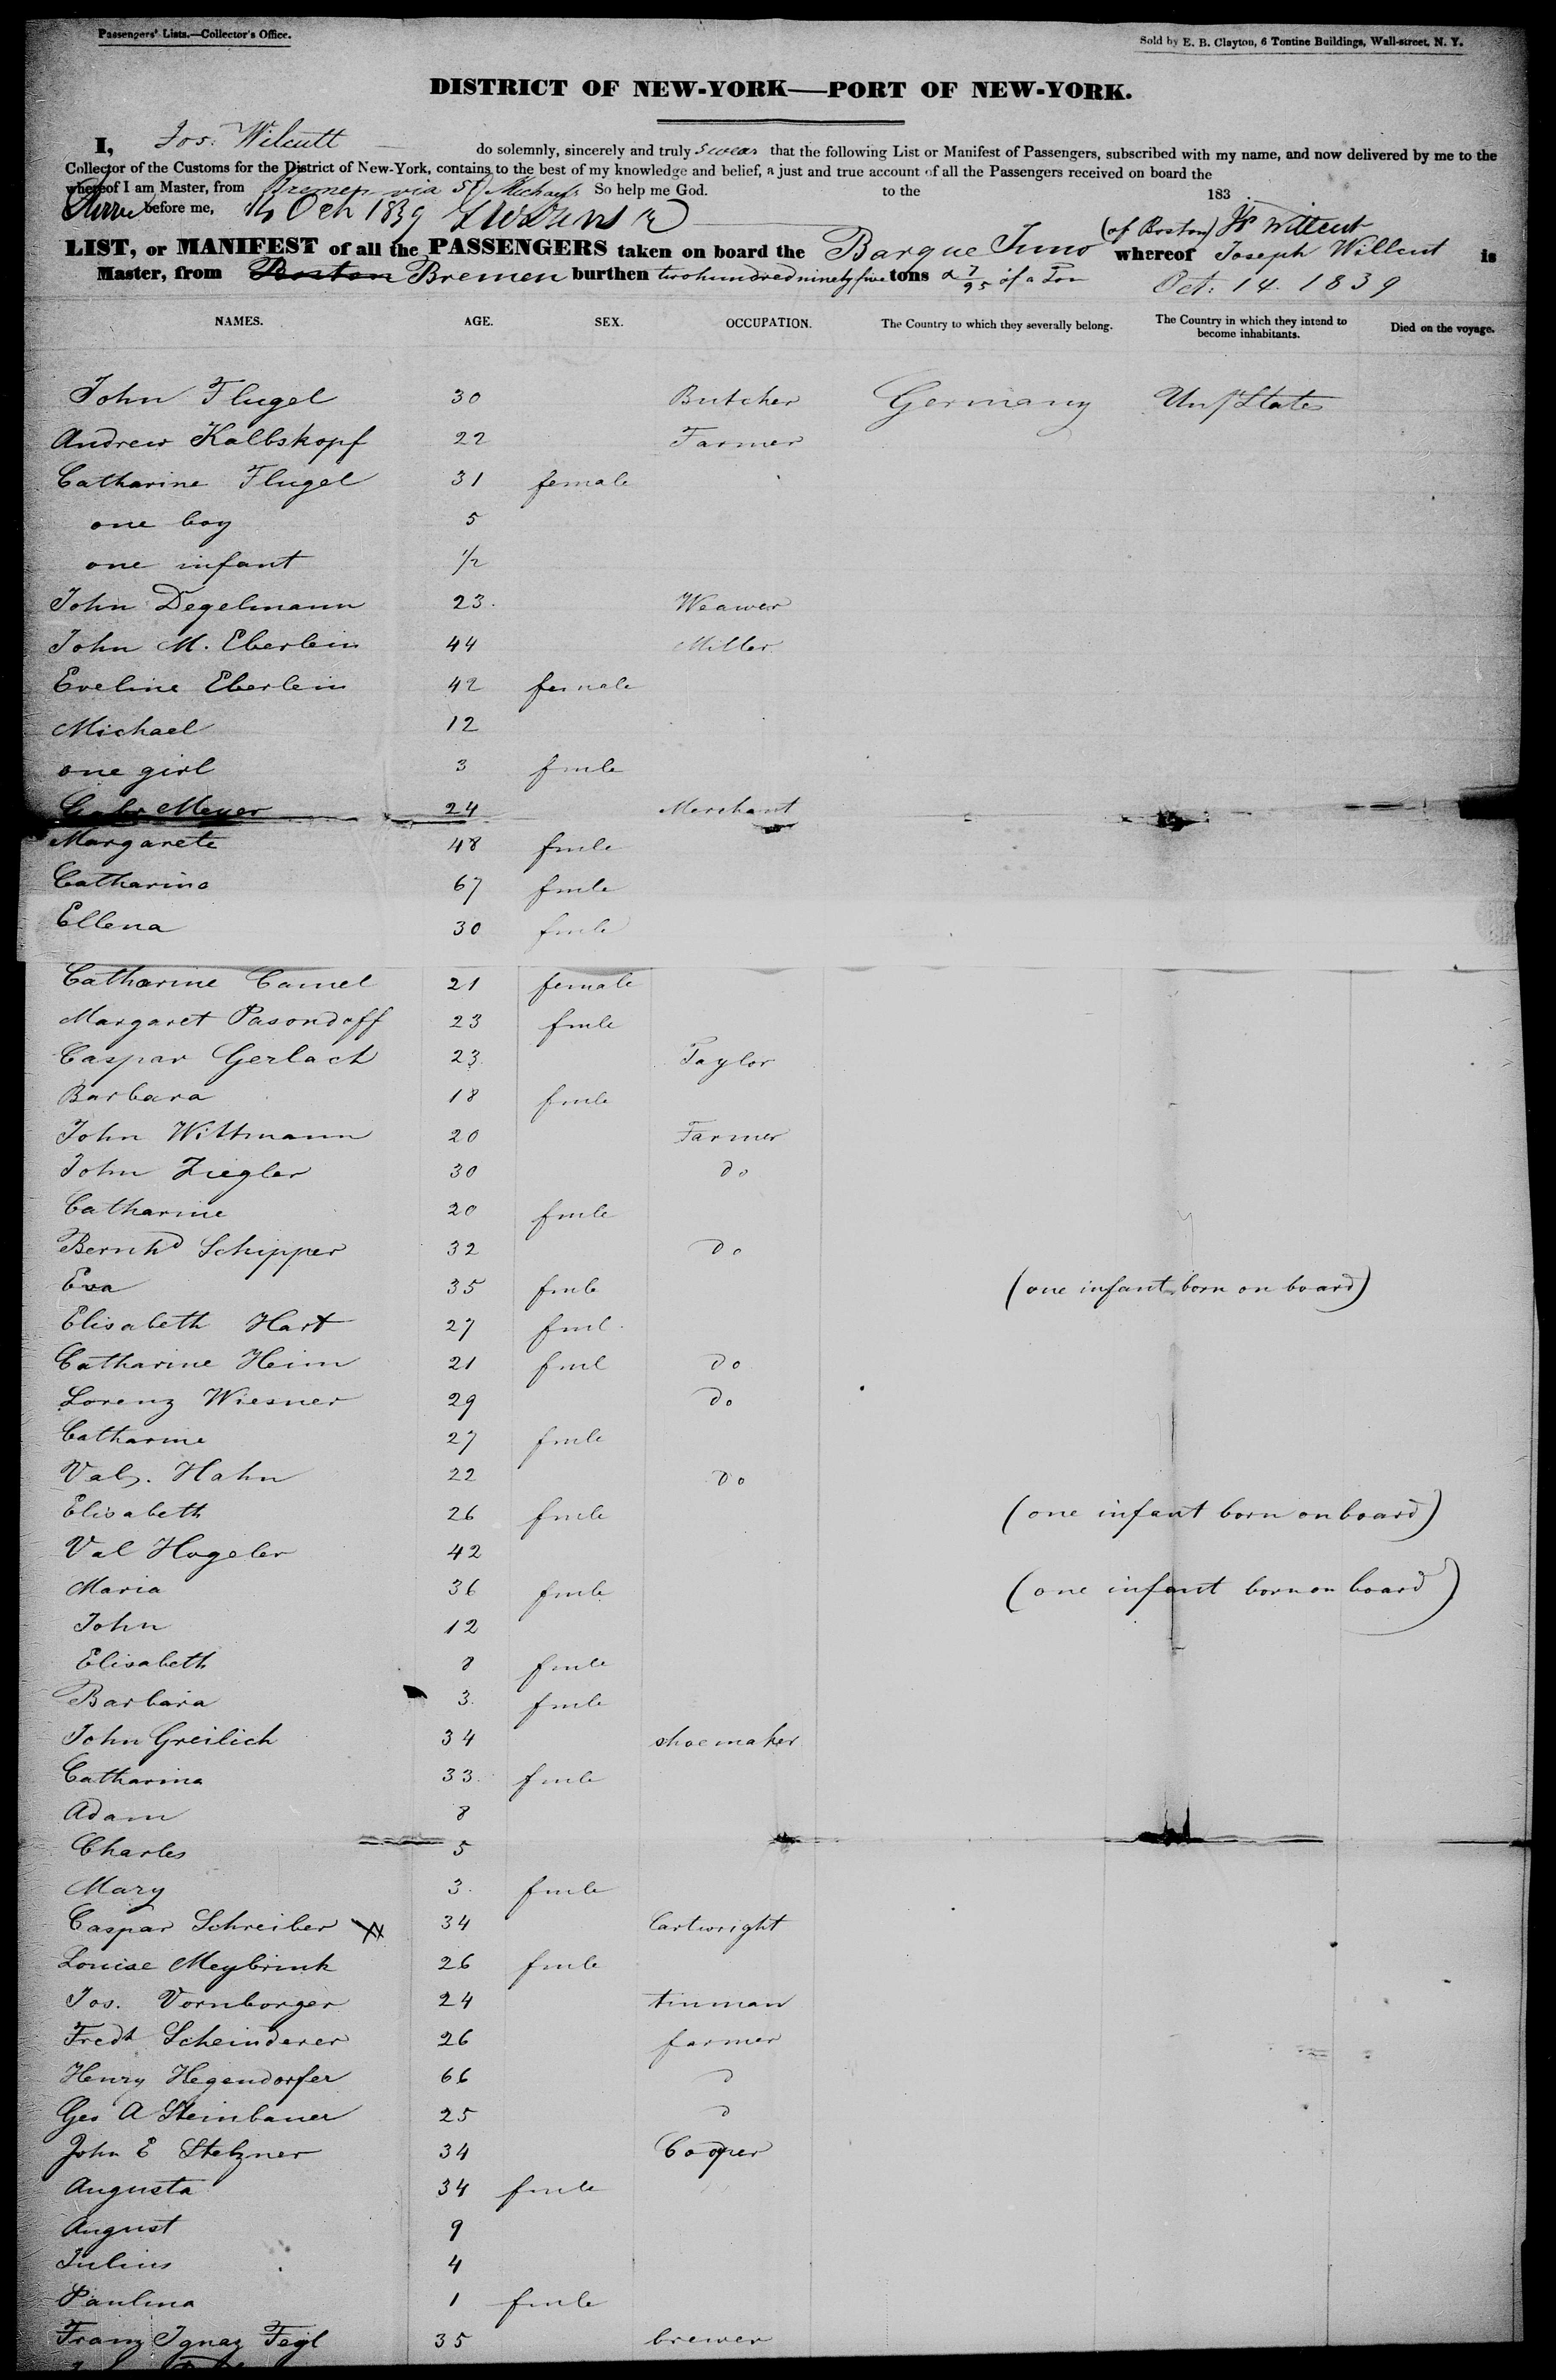 Passengers' Lists.—Collector's Office.
Sold by E. B. Clayton, 6 Tontine Buildings, Wall-street, N. Y.
DISTRICT OF NEW-YORK—PORT OF NEW-YORK.
I, Jos: Wilcutt do solemnly, sincerely and truly swear that the following List or Manifest of Passengers, subscribed with my name, and now delivered by me to the
Collector of the Customs for the District of New-York, contains to the best of my knowledge and belief, a just and true account of all the Passengers received on board the
whereof I am Master, from Bremen via St Michaels So help me God. to the 183
before me, 14 Oct 1839
(of Boston) Js Willcut
LIST, or MANIFEST of all the PASSENGERS taken on board the Barque Juno whereof Joseph Willcut is
Master, from Boston Bremen burthen two hundred ninety five tons & 7/95 of a Ton Oct: 14. 1839
NAMES. AGE. SEX. OCCUPATION. The Country to which they severally belong. The Country in which they intend to become inhabitants. Died on the voyage.
John Flugel 30 Butcher Germany Un/States
Andrew Kalbskopf 22 Farmer
Catharine Flugel 31 female
one boy 5
one infant 1/2
John Degelmann 23. Weawer
John M. Eberlein 44 Miller
Eveline Eberlein 42 female
Michael 12
one girl 3 fmle
Meyer 24 Merchant
Margarete 48 fmle
Catharina 67 fmle
Ellena 30 fmle
Catharine Camel 21 female
Margaret Pasondoff 23 fmle
Caspar Gerlach 23 Taylor
Barbara 18 fmle
John Wittmann 20 Farmer
John Ziegler 30 do
Catharine 20 fmle
Bernhd Schipper 32 do
Eva 35 fmle (one infant born on board)
Elisabeth Hart 27 fml.
Catharine Heim 21 fml do
Lorenz Wiesner 29 do
Catharine 27 fmle
Val. Hahn 22 do
Elisabeth 26 fmle (one infant born on board)
Val Hogeler 42
Maria 36 fmle (one infant born on board)
John 12
Elisabeth 8 fmle
Barbara 3. fmle
John Greilich 34 shoemaker
Catharina 33. fmle
Adam 8
Charles 5
Mary 3. fmle
Caspar Schreiber 34 Cartwright
Louise Meybrink 26 fmle
Jos. Vornborger 24 tinman
Fredk Scheinderer 26 farmer
Henry Hegendorfer 66 d
Geo A Steinbauer 25 d
John E Stelzner 34 Cooper
Augusta 34 fmle
August 9
Julius 4
Paulina 1 fmle
Franz Ignaz Fegl 35 brewer